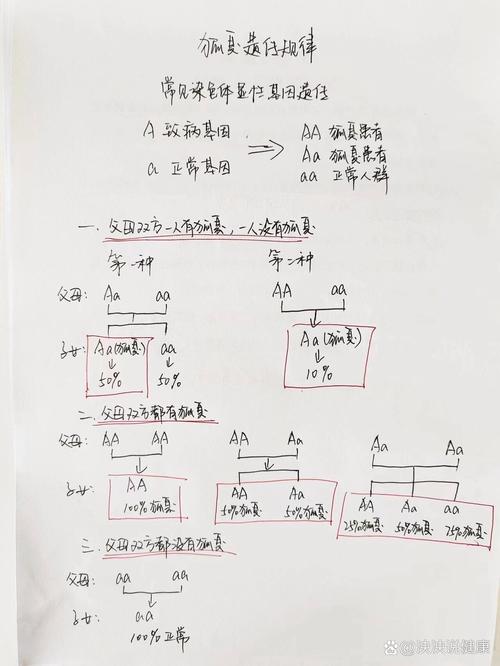 狐臭遗传规律
常见染色体显性基因遗传
A 致病基因 ⇒ AA 狐臭患者
Aa 狐臭患者
a 正常基因 aa 正常人群
一、父母双方一人有狐臭,一人没有狐臭
第一种 第二种
父母: Aa aa AA aa
子女: Aa(狐臭) aa Aa(狐臭)
50% 50% 10%
二、父母双方都有狐臭
父母: AA AA AA Aa Aa Aa
子女: AA AA Aa AA Aa aa
100%狐臭 50%狐臭 50%狐臭 25%狐臭 50%狐臭 75%狐臭
三、父母双方都没有狐臭
父母: aa aa
子女: aa
100%正常
泱泱说健康